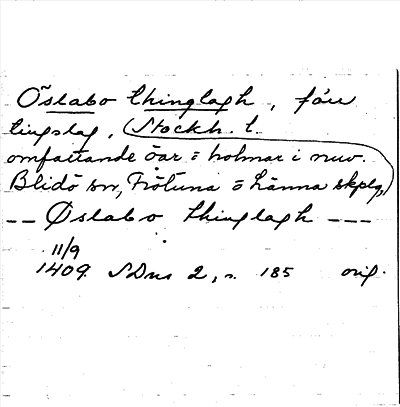 Öslabo thinglagh, förv
tingslag, (Stockh. l.
omfattande öar o holmar i nuv.
Blidö sn, Frötuna o Länna skplg)
-- Øslabo thinglagh ---
11/9
1409. SDns 2, s. 185 orig.